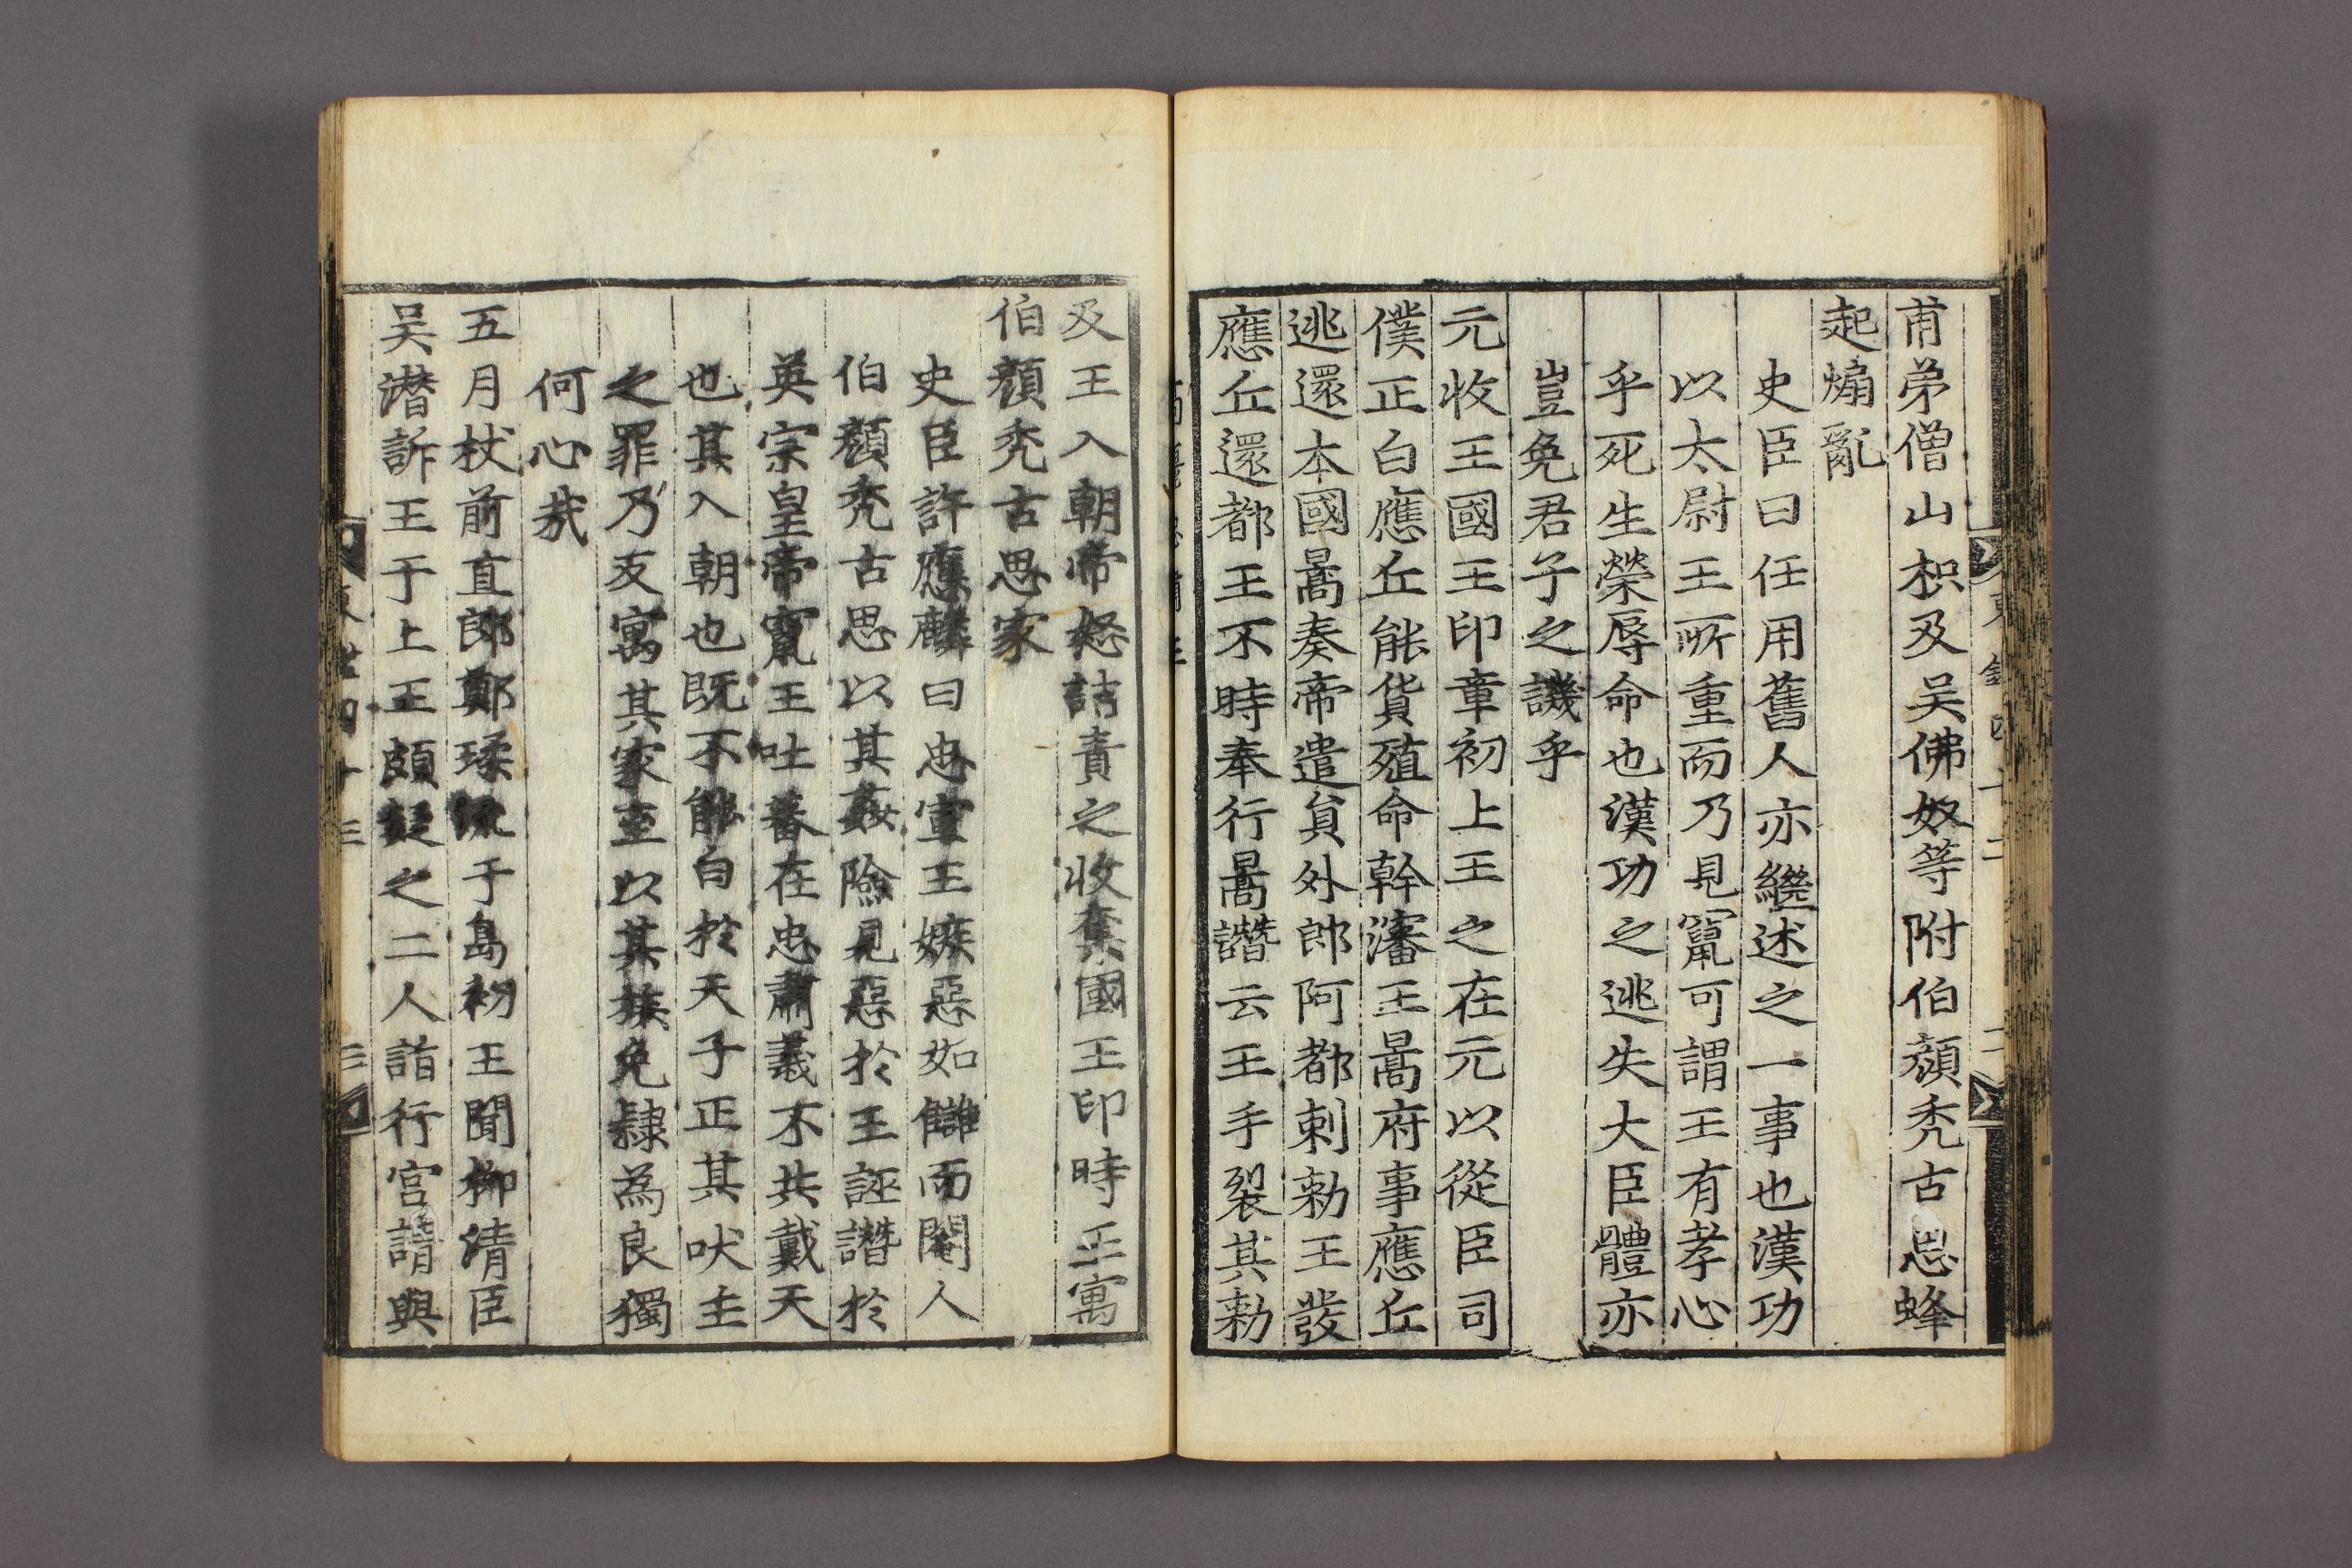 甫弟僧山枳及吴佛奴等附伯顔禿古思蜂
起煽亂
史臣曰任用舊人亦繼述之一事也漢功
以太尉王所重而乃見竄可謂王有孝心
乎死生榮辱命也漢功之逃失大臣體亦
豈免君子之譏乎
元收王國王印章初上王之在元以從臣司
僕正白應丘能貨殖命幹瀋王暠府事應丘
逃還本國暠奏帝遣貟外郎阿都剌勑王發
應丘還都王不時奉行暠譖云王手裂其勑
及王入朝帝怒詰責之收奪國王印時王寓
伯顔禿古思家
史臣許應麟曰忠宣王嫉惡如讎而閹人
伯顔禿古思以其姦險見惡於王誣譖於
英宗皇帝竄王吐蕃在忠肅義不共戴天
也其入朝也既不能白於天子正其吠主
之罪乃反寓其家至以其族免隷為良獨
何心哉
五月杖前直郎鄭瑈流于島初王聞柳清臣
吴潜訴王于上王頗疑之二人詣行宮請與